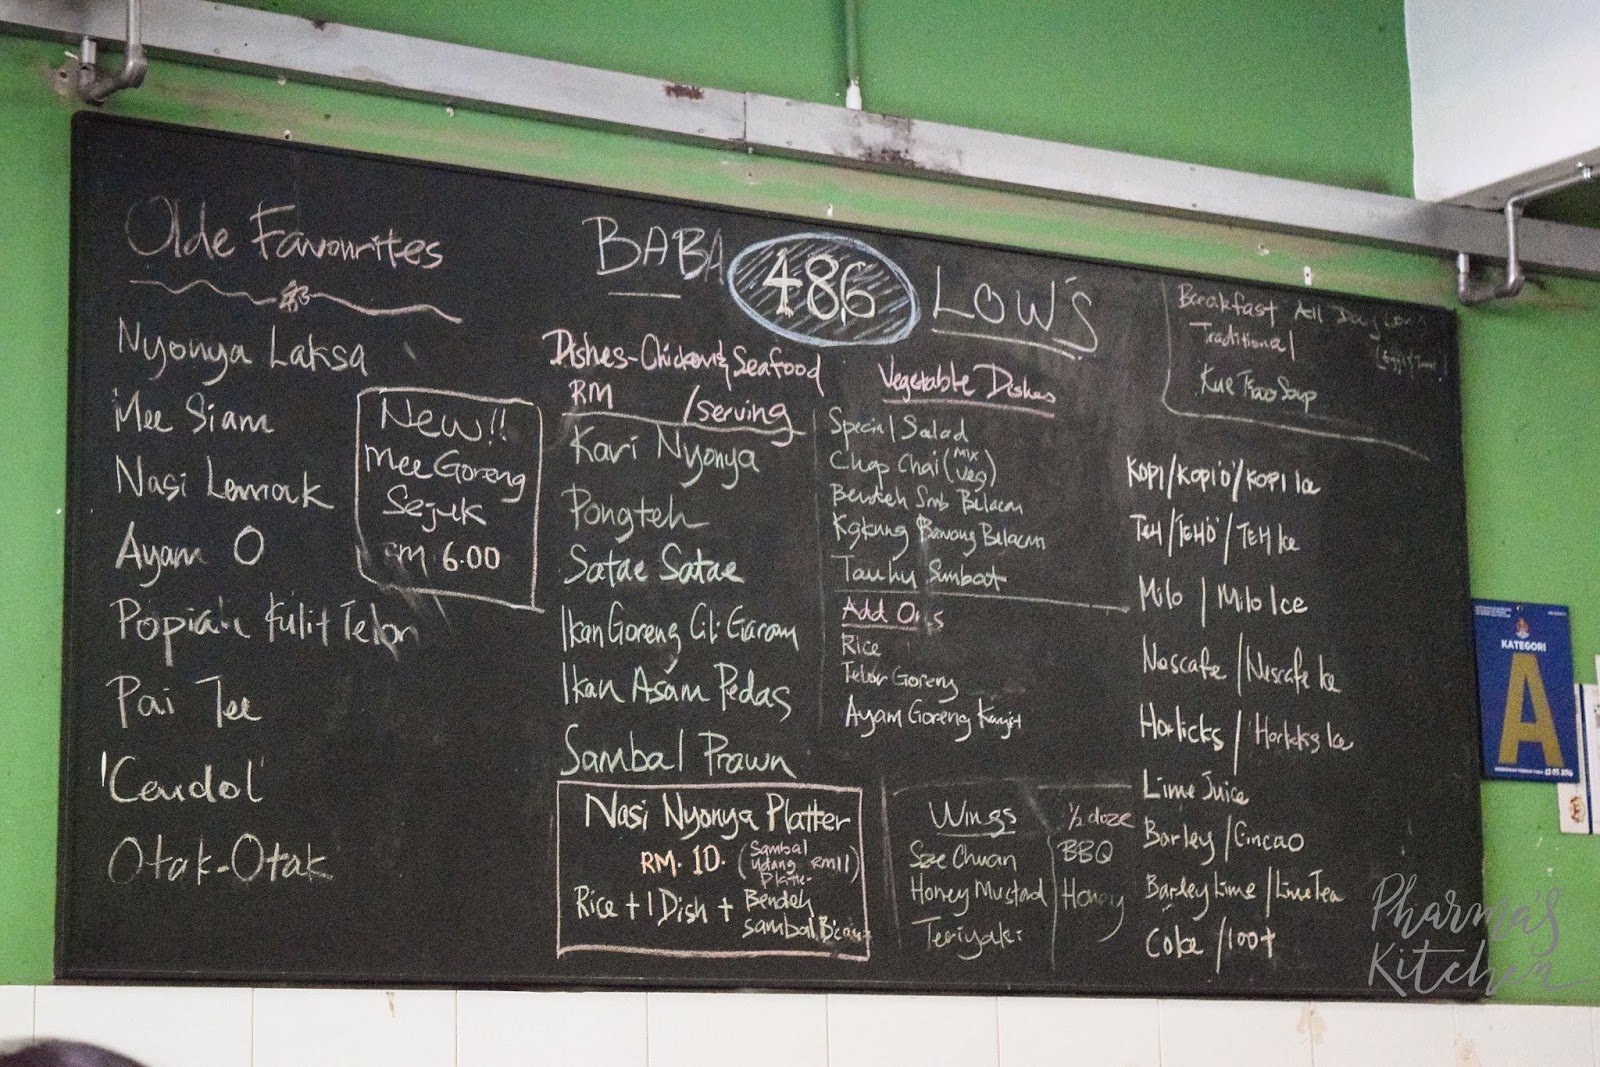 Olde Favourites
Nyonya Laksa
Mee Siam
Nasi Lemak
Ayam O
Popiah Kulit Telor
Pai Tee
'Cendol'
Otak-Otak
New!!
Mee Goreng
Sejuk
RM 6.00
BABA 486 LOW'S
Dishes-Chicken & Seafood
RM /serving
Kari Nyonya
Pongteh
Satae Satae
Ikan Goreng Cili Garam
Ikan Asam Pedas
Sambal Prawn
Nasi Nyonya Platter
RM. 10. (Sambal Udang RM11
Rice + 1 Dish + Bendeh
sambal
Vegetable Dishes
Special Salad
Chap Chai (Mix Veg)
Bendeh Smb Belacan
Kgkung Bawang Belacan
Tauhu Sumbat
Add Ons
Rice
Telor Goreng
Ayam Goreng Kunyit
Wings 1/2 doze
Sze Chuan
Honey Mustad
Teriyaki
BBQ
Honey
Breakfast All Day Long
Traditional
Kue Tiao Soup
KOPI/KOPI'O'/KOPI Ice
TEH/TEH'O'/TEH Ice
Milo / Milo Ice
Nescafe / Nescafe Ice
Horlicks / Horlicks Ice
Lime Juice
Barley / Cincao
Barley Lime / Lime Tea
Coke / 100+
KATEGORI
A
Pharma's
Kitchen